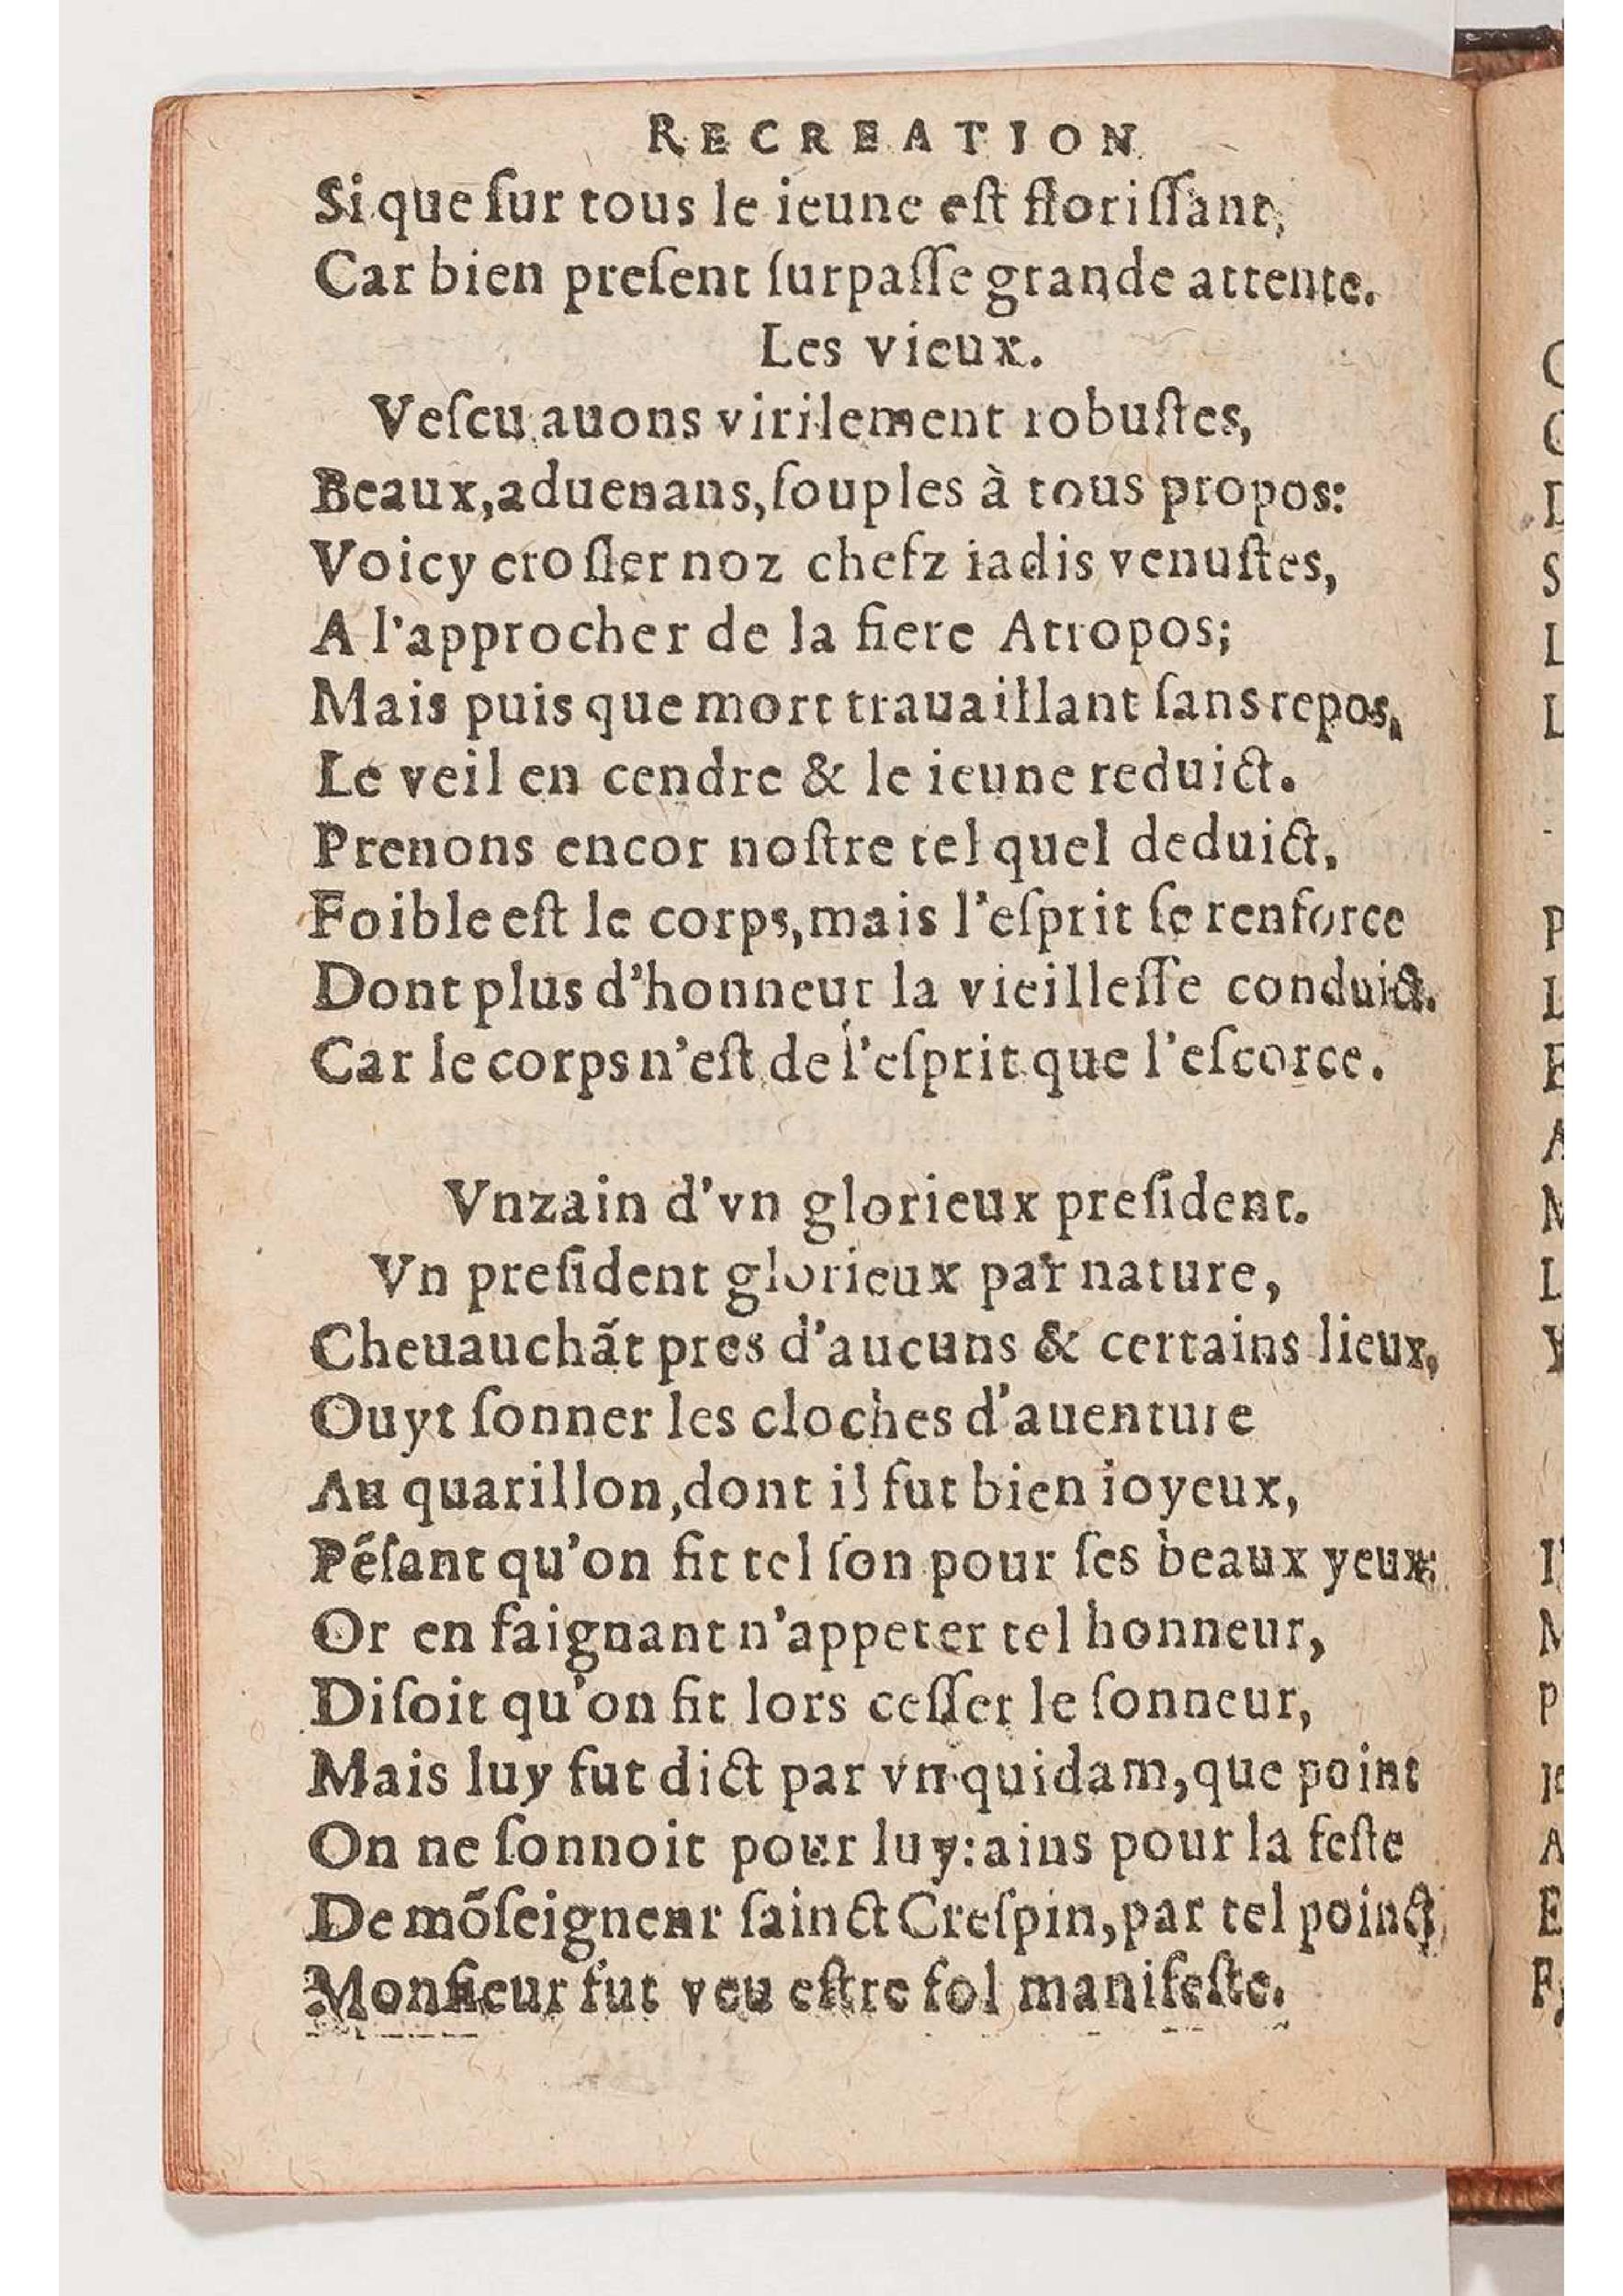 RECREATION
Si que ſur tous le ieune eſt floriſſant,
Car bien preſent ſurpaſſe grande attente.
Les vieux.
Veſcu auons virilement robuſtes,
Beaux, aduenans, ſouples à tous propos:
Voicy croſler noz chefz iadis venuſtes,
A l'approcher de la fiere Atropos;
Mais puis que mort trauaillant ſans repos,
Le veil en cendre & le ieune reduict.
Prenons encor noſtre tel quel deduict,
Foible eſt le corps, mais l'eſprit ſe renforce
Dont plus d'honneur la vieilleſſe conduict.
Car le corps n'eſt de l'eſprit que l'eſcorce.
Vnzain d'vn glorieux preſident.
Vn preſident glorieux par nature,
Cheuauchãt pres d'aucuns & certains lieux,
Ouyt ſonner les cloches d'auenture
Au quarillon, dont il fut bien ioyeux,
Pẽſant qu'on fit tel ſon pour ſes beaux yeux:
Or en faignant n'appeter tel honneur,
Diſoit qu'on fit lors ceſſer le ſonneur,
Mais luy fut dict par vn quidam, que point
On ne ſonnoit pour luy: ains pour la feſte
De mõſeigneur ſainct Creſpin, par tel poinct
Monſieur fut veu eſtre fol manifeſte.